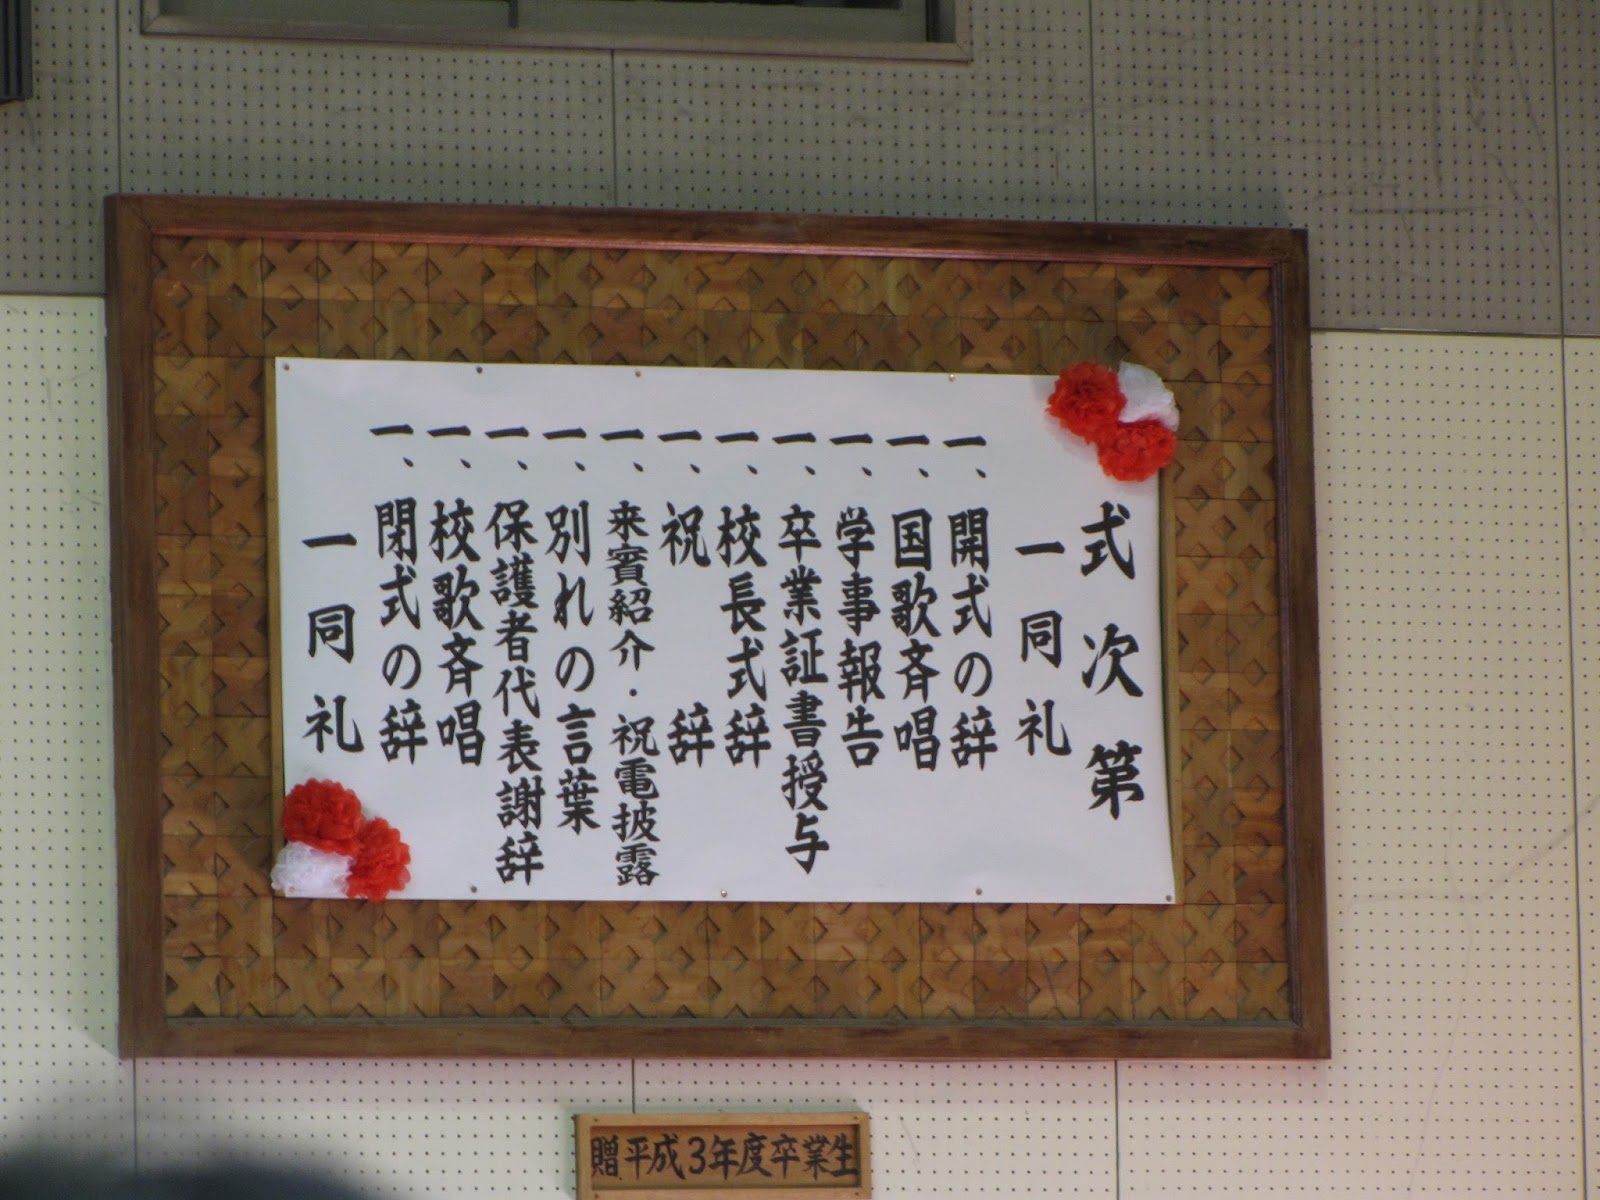 式次第
一同礼
一、開式の辞
一、国歌斉唱
一、学事報告
一、卒業証書授与
一、校長式辞
一、祝辞
一、来賓紹介・祝電披露
一、別れの言葉
一、保護者代表謝辞
一、校歌斉唱
一、閉式の辞
一同礼
贈平成3年度卒業生